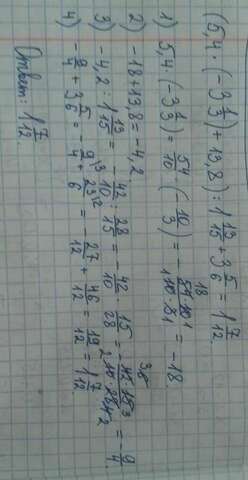 (5,4 · (-3 1/3) + 13,8) : 1 13/15 + 3 5/6 = 1 7/12.
1) 5,4 · (-3 1/3) = 54/10 · (-10/3) = - 54·10/10·3 = -18.
2) -18 + 13,8 = -4,2
3) -4,2 : 1 13/15 = - 42/10 : 28/15 = - 42/10 · 15/28 = - 42·15/10·28 = - 9/4.
4) - 9/4 + 3 5/6 = - 9/4 + 23/6 = - 27/12 + 46/12 = 19/12 = 1 7/12
Ответ: 1 7/12